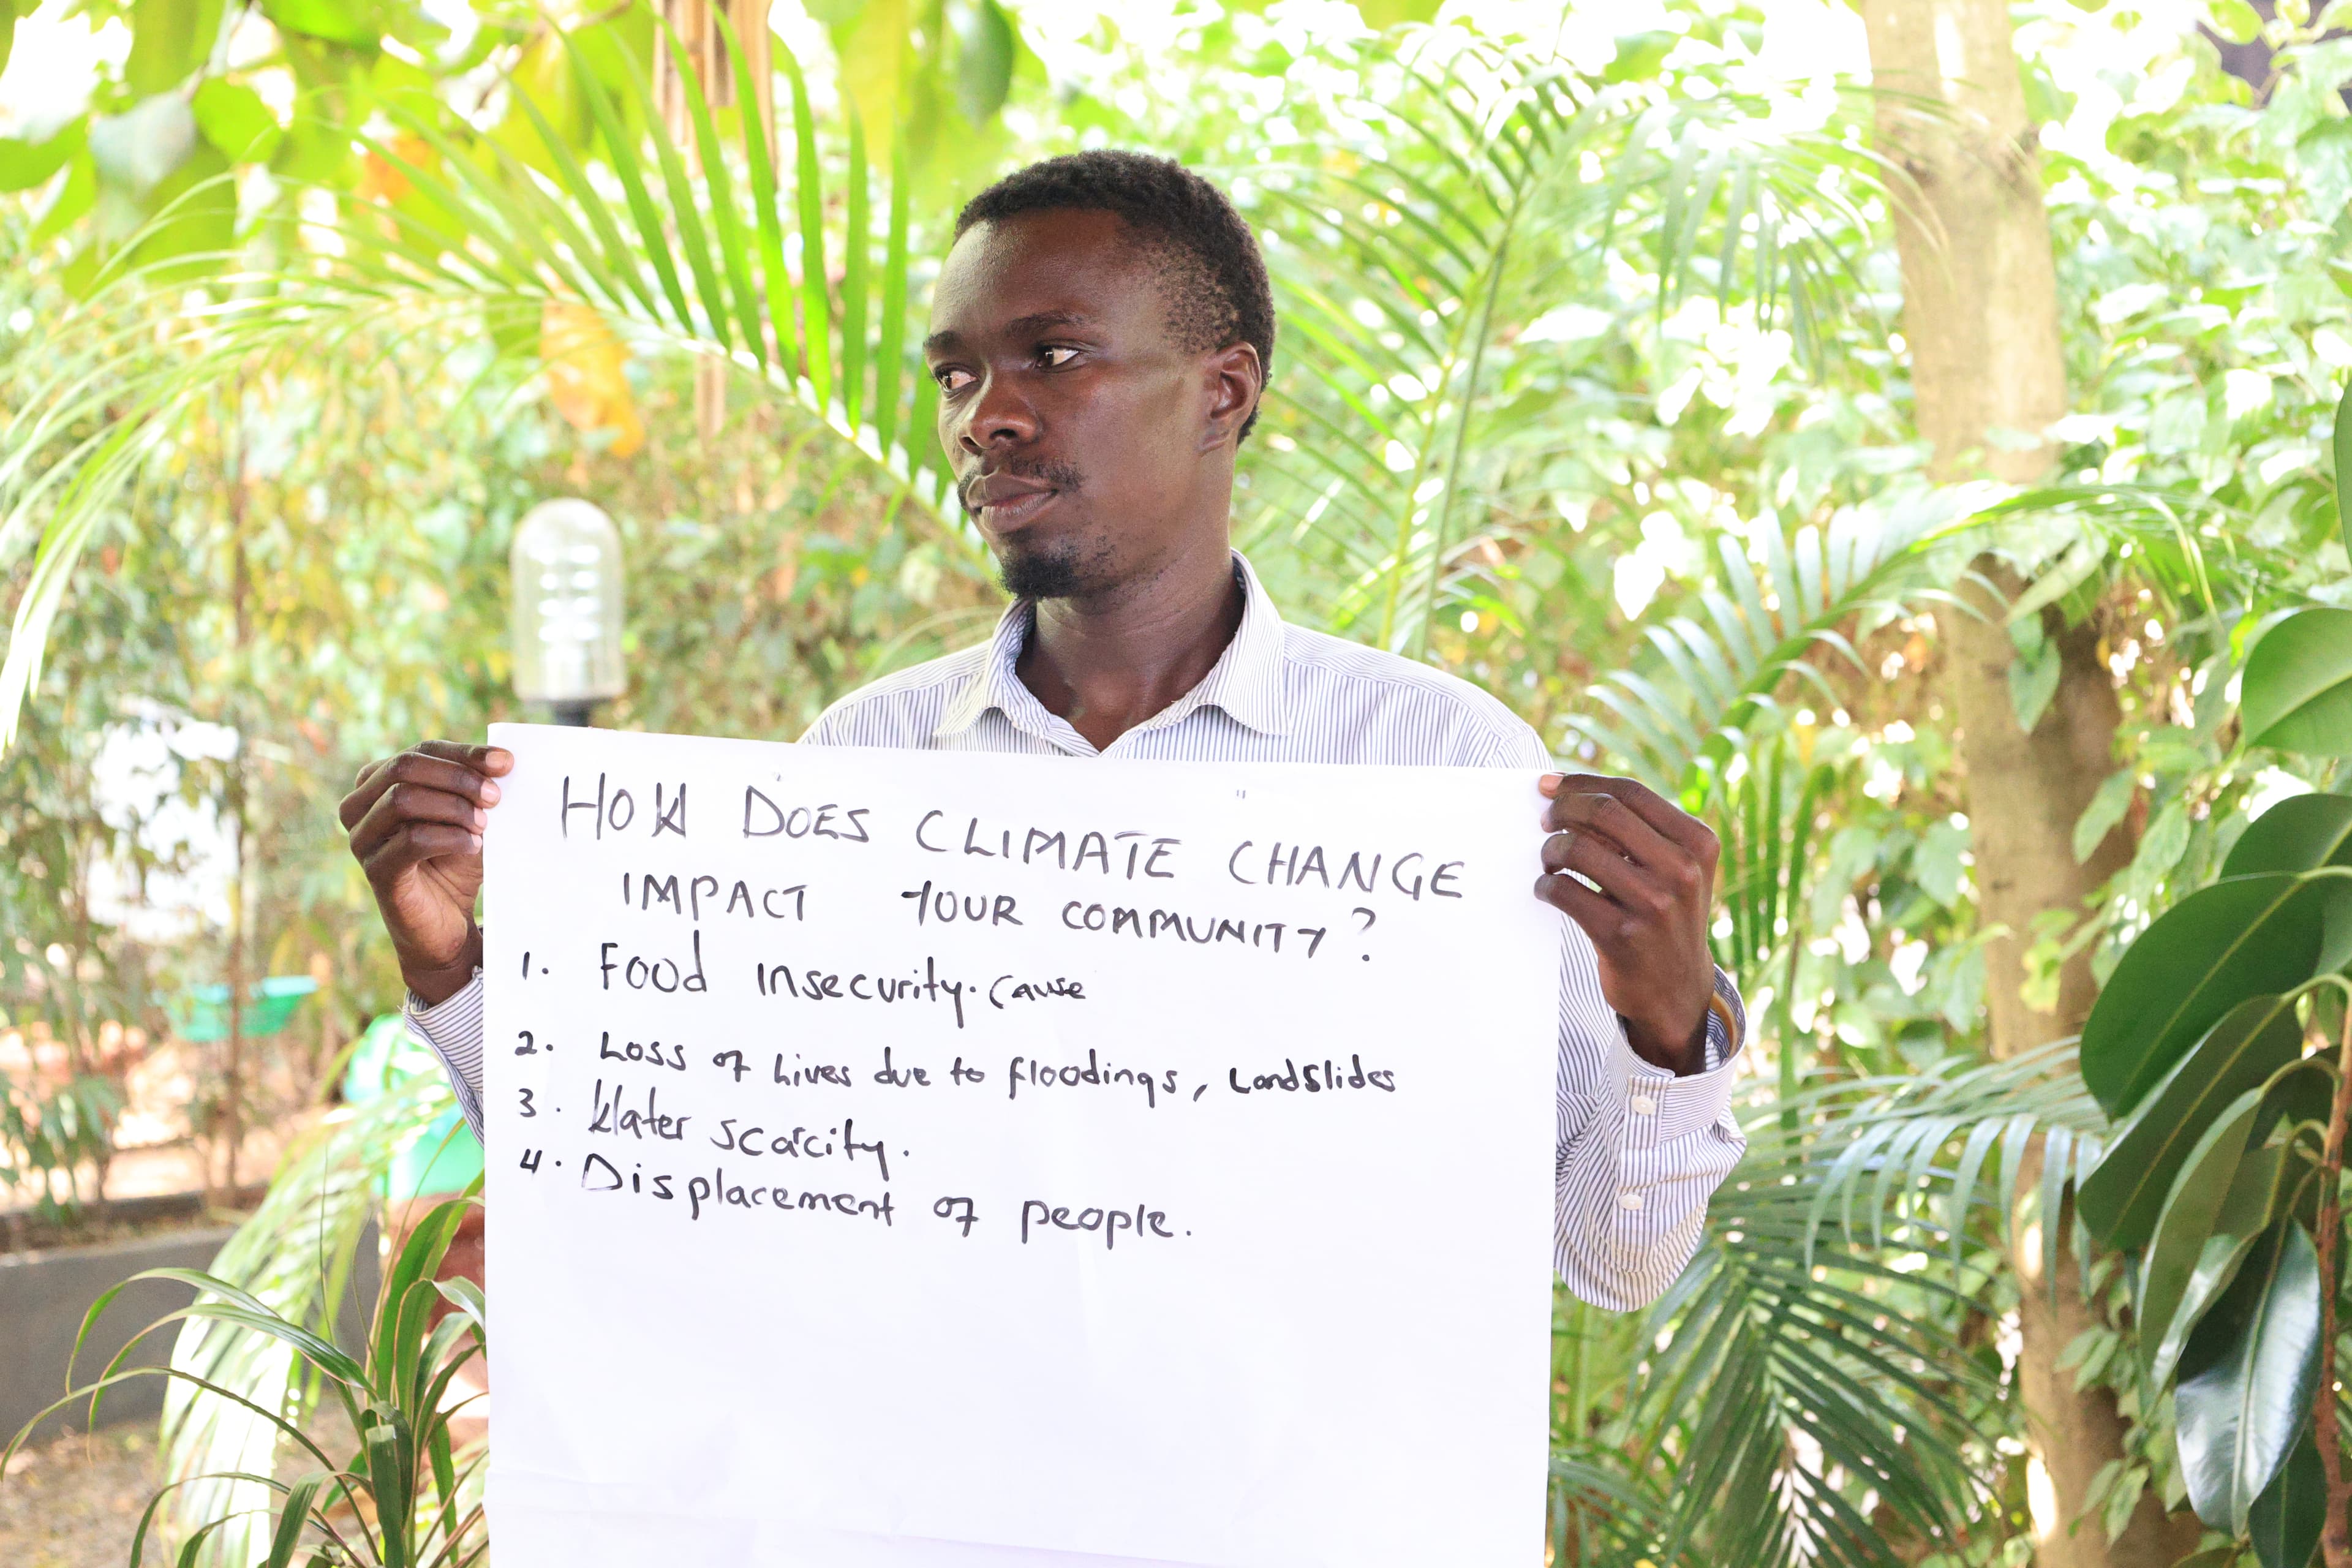 HOW DOES CLIMATE CHANGE
IMPACT YOUR COMMUNITY?
1. Food insecurity. cause
2. Loss of Lives due to floodings, Landslides
3. Water scarcity.
4. Displacement of people.